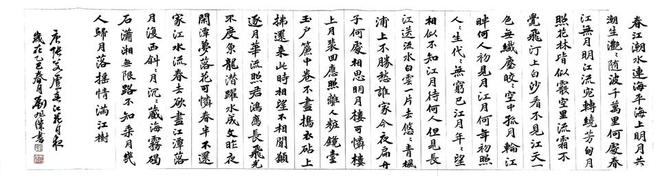 春江潮水連海平海上明月共
潮生灩〻隨波千萬里何處春
江無月明江流宛轉繞芳甸月
照花林皆似霰空里流霜不
覺飛汀上白沙看不見江天一
色無纖塵皎〻空中孤月輪江
畔何人初見月江月何年初照
人〻生代〻無窮已江月年〻望
相似不知江月待何人但見長
江送流水白雲一片去悠〻青楓
浦上不勝愁誰家今夜扁舟
子何處相思明月樓可憐樓
上月裴回應照離人妝鏡臺
玉戶簾中卷不盡搗衣砧上
拂還來此時相望不相聞願
逐月華流照君鴻雁長飛光
不度魚龍潛躍水成文昨夜
閒潭夢落花可憐春半不還
家江水流春去欲盡江潭落
月復西斜〻月沉〻藏海霧碣
石瀟湘無限路不知乘月幾
人歸月落搖情滿江樹
唐張若虛春江花月夜
歲在乙巳春月劉書